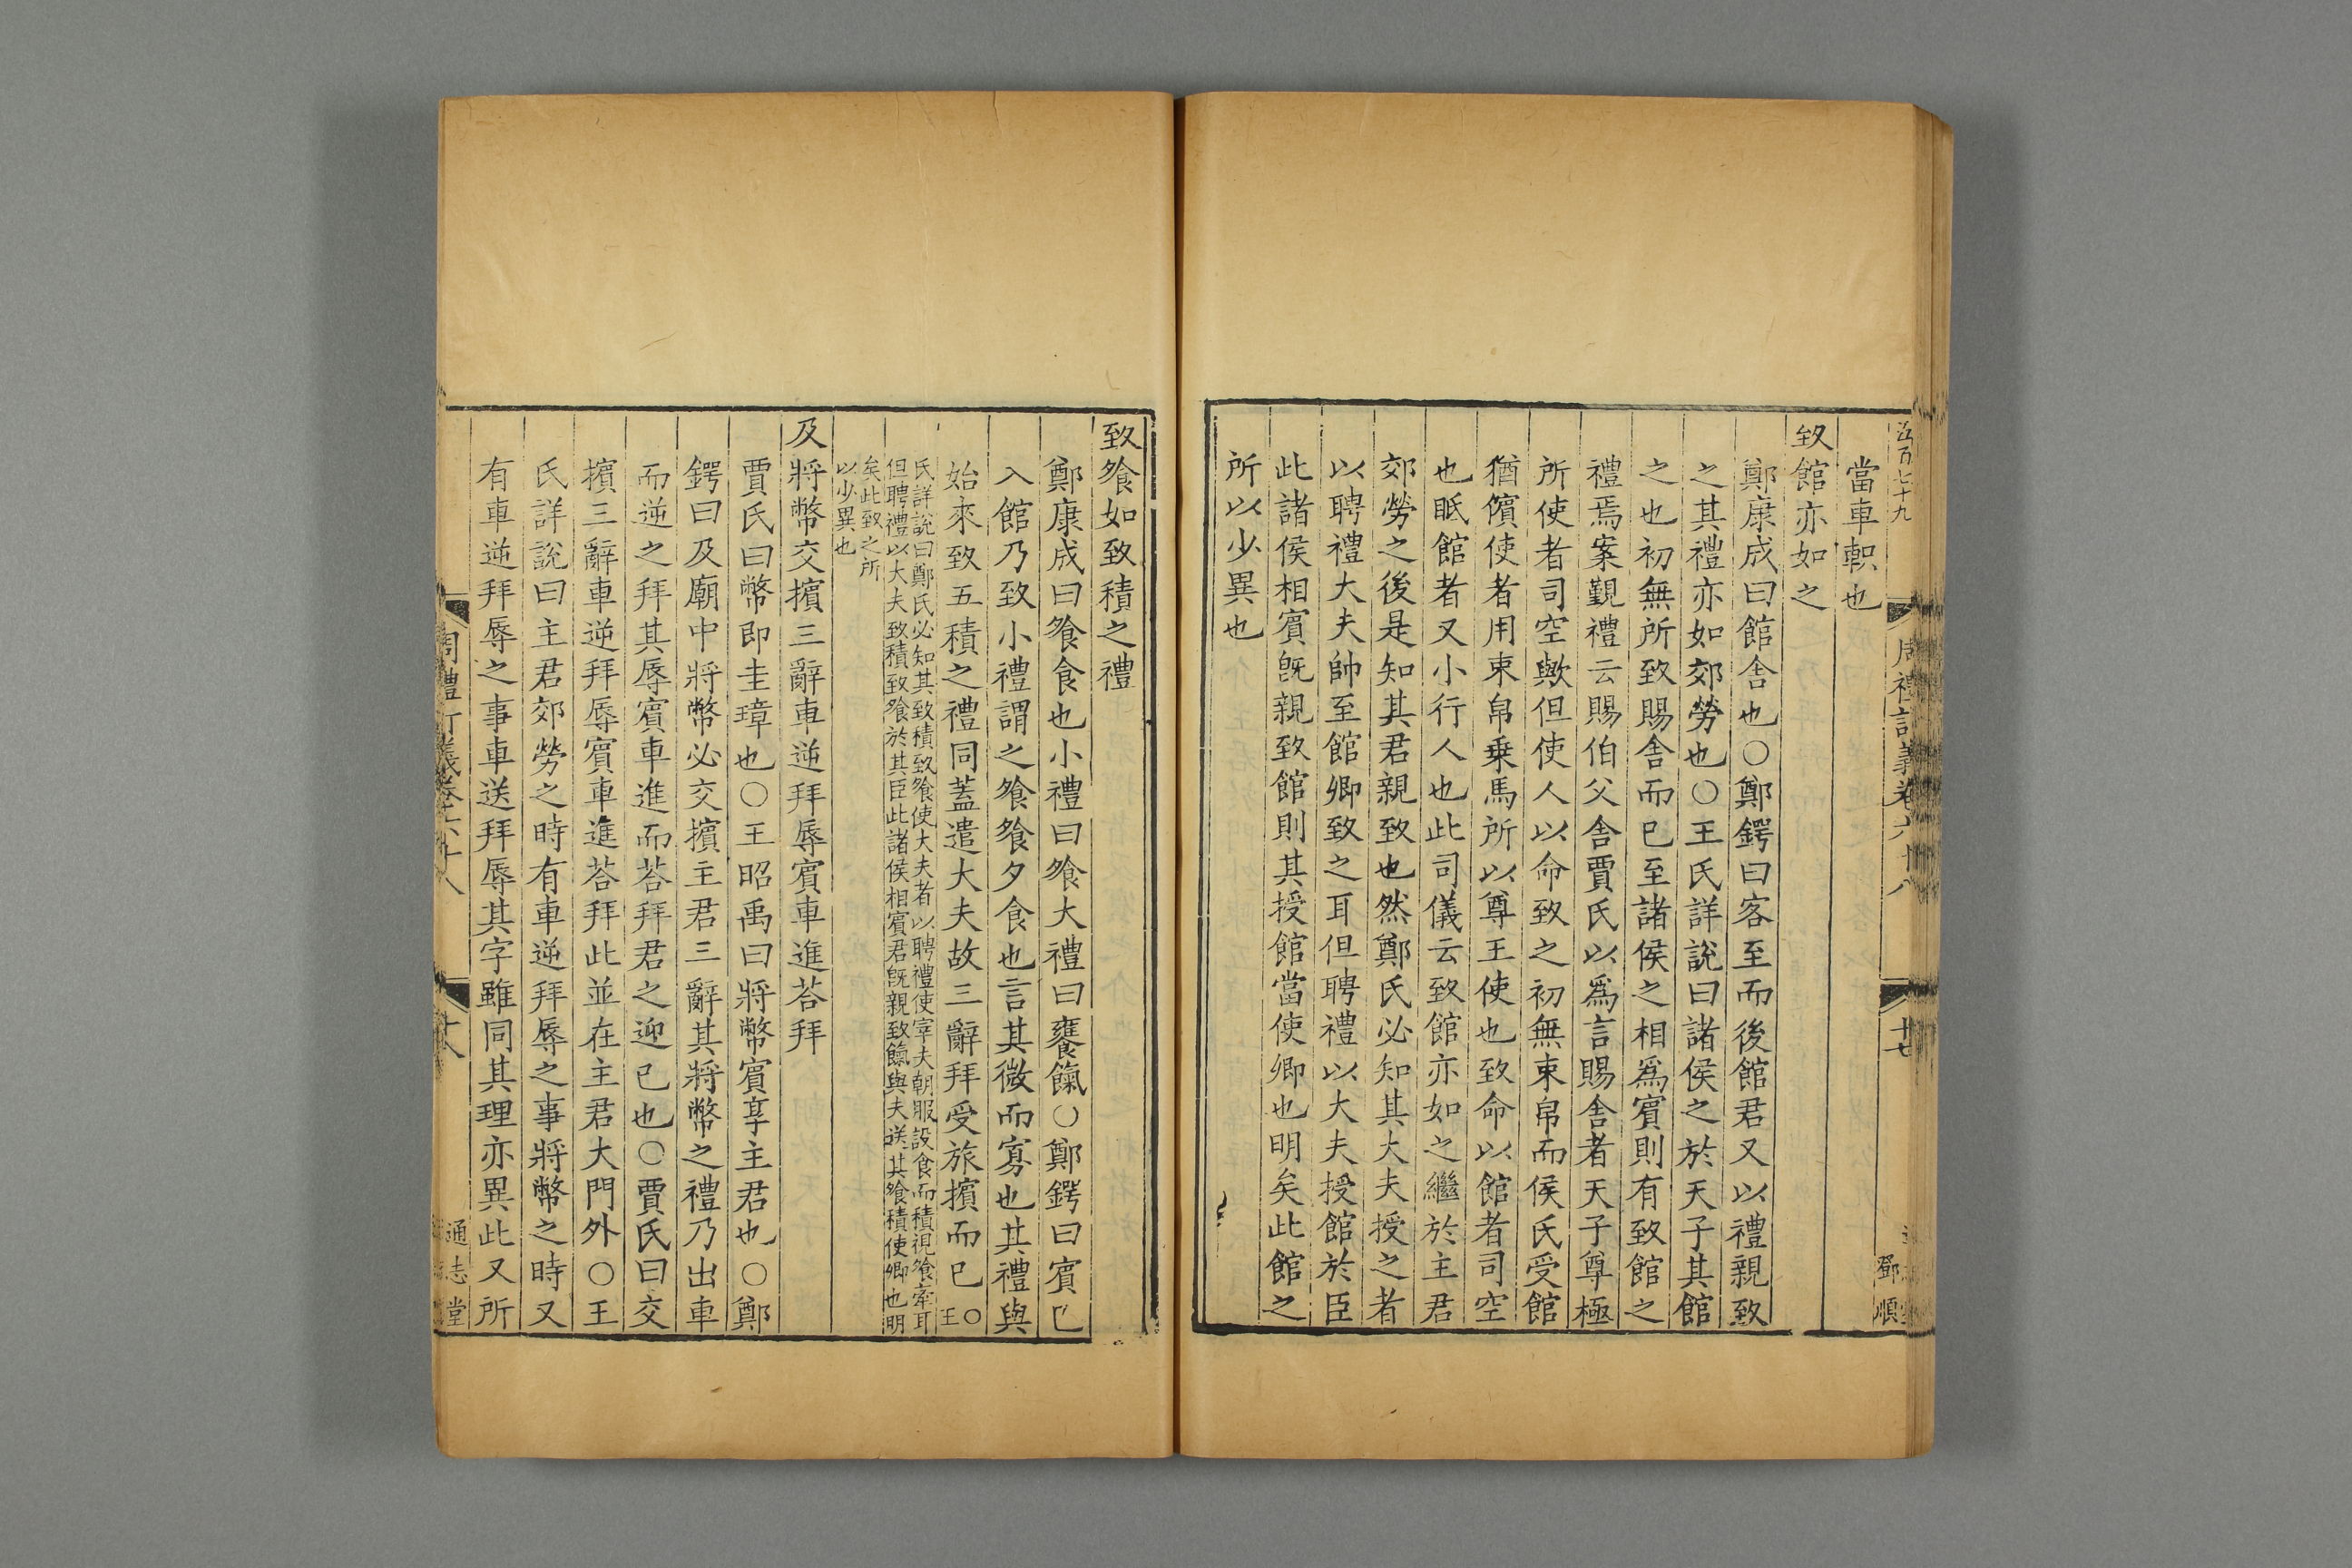 五百七十九
周禮訂義卷六十八
十七
鄧順
當車軹也
致館亦如之
鄭康成曰館舍也○鄭鍔曰客至而後館君又以禮親致
之其禮亦如郊勞也○王氏詳說曰諸侯之於天子其館
之也初無所致賜舍而已至諸侯之相爲賓則有致館之
禮焉案覲禮云賜伯父舍賈氏以爲言賜舍者天子尊極
所使者司空歟但使人以命致之初無束帛而侯氏受館
猶儐使者用束帛乗馬所以尊王使也致命以館者司空
也眡館者又小行人也此司儀云致館亦如之繼於主君
郊勞之後是知其君親致也然鄭氏必知其大夫授之者
以聘禮大夫帥至館卿致之耳但聘禮以大夫授館於臣
此諸侯相賓旣親致館則其授館當使卿也明矣此館之
所以少異也
致飧如致積之禮
鄭康成曰飧食也小禮曰飧大禮曰饔餼○鄭鍔曰賓已
入館乃致小禮謂之飧飧夕食也言其微而寡也其禮與
始來致五積之禮同蓋遣大夫故三辭拜受旅擯而已○王
氏詳說曰鄭氏必知其致積致飧使大夫者以聘禮使宰夫朝服設食而積視飧牽耳
但聘禮以大夫致積致飧於其臣此諸侯相賓君旣親致餼與夫送其飧積使卿也明
矣此致之所
以少異也
及將幣交擯三辭車逆拜辱賓車進荅拜
賈氏曰幣即圭璋也○王昭禹曰將幣賓享主君也○鄭
鍔曰及廟中將幣必交擯主君三辭其將幣之禮乃出車
而逆之拜其辱賓車進而荅拜君之迎已也○賈氏曰交
擯三辭車逆拜辱賓車進荅拜此並在主君大門外○王
氏詳說曰主君郊勞之時有車逆拜辱之事將幣之時又
有車逆拜辱之事車送拜辱其字雖同其理亦異此又所
周禮訂義卷六十八
十八
通志堂